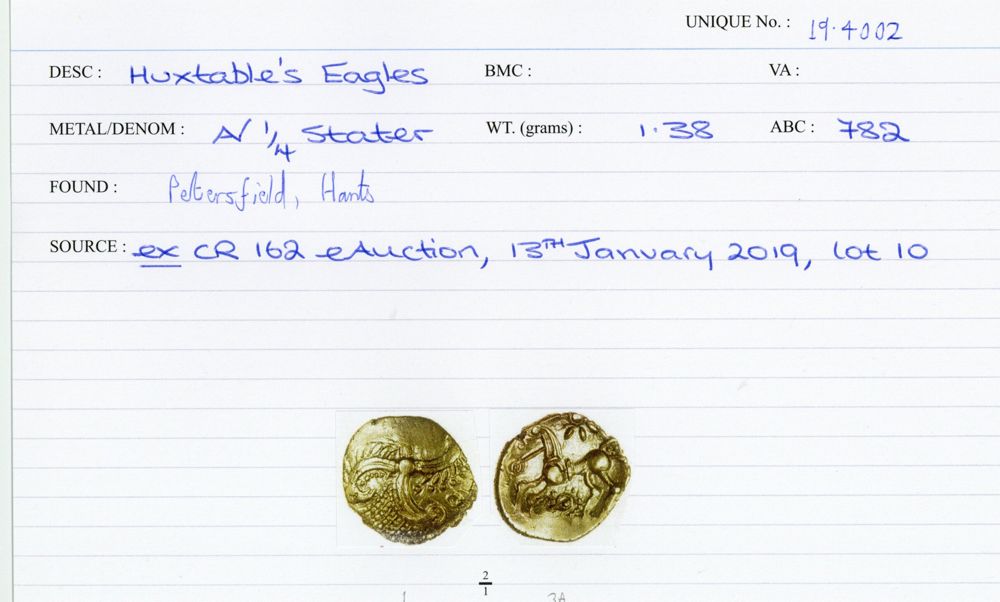 UNIQUE No. : 19.4002
DESC : Huxtable's Eagles BMC : VA :
METAL/DENOM : A/ 1/4 Stater WT. (grams) : 1.38 ABC : 782
FOUND : Petersfield, Hants
SOURCE : ex CR 162 eAuction, 13TH January 2019, lot 10
2/1
1 3A